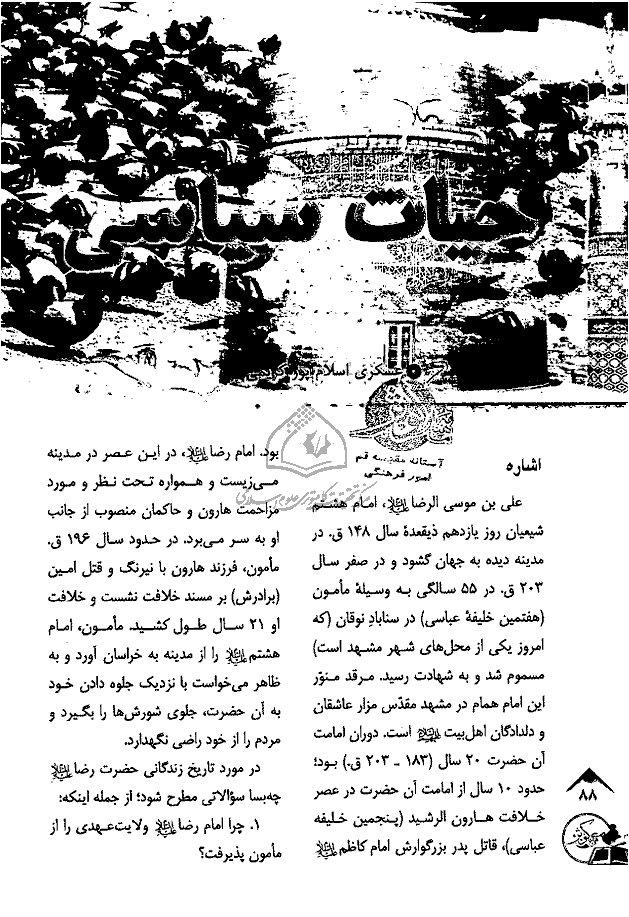 حیات سیاسی
عسکری اسلام‌پور
آستانه مقدسه قم
امور فرهنگی
اشاره
علی بن موسی الرضا علیه‌السلام، امام هشتم
شیعیان روز یازدهم ذیقعدهٔ سال ۱۴۸ ق. در
مدینه دیده به جهان گشود و در صفر سال
۲۰۳ ق. در ۵۵ سالگی به وسیلهٔ مأمون
(هفتمین خلیفهٔ عباسی) در سنابادِ نوقان (که
امروز یکی از محل‌های شهر مشهد است)
مسموم شد و به شهادت رسید. مرقد منوّر
این امام همام در مشهد مقدّس مزار عاشقان
و دلدادگان اهل‌بیت علیهم‌السلام است. دوران امامت
آن حضرت ۲۰ سال (۱۸۳ ـ ۲۰۳ ق.) بود؛
حدود ۱۰ سال از امامت آن حضرت در عصر
خلافت هارون الرشید (پنجمین خلیفه
عباسی)، قاتل پدر بزرگوارش امام کاظم علیه‌السلام
بود. امام رضا علیه‌السلام، در این عصر در مدینه
می‌زیست و همواره تحت نظر و مورد
مزاحمت هارون و حاکمان منصوب از جانب
او به سر می‌برد. در حدود سال ۱۹۶ ق.
مأمون، فرزند هارون با نیرنگ و قتل امین
(برادرش) بر مسند خلافت نشست و خلافت
او ۲۱ سال طول کشید. مأمون، امام
هشتم علیه‌السلام را از مدینه به خراسان آورد و به
ظاهر می‌خواست با نزدیک جلوه دادن خود
به آن حضرت، جلوی شورش‌ها را بگیرد و
مردم را از خود راضی نگهدارد.
در مورد تاریخ زندگانی حضرت رضا علیه‌السلام
چه‌بسا سؤالاتی مطرح شود؛ از جمله اینکه:
۱. چرا امام رضا علیه‌السلام ولایت‌عهدی را از
مأمون پذیرفت؟
۸۸